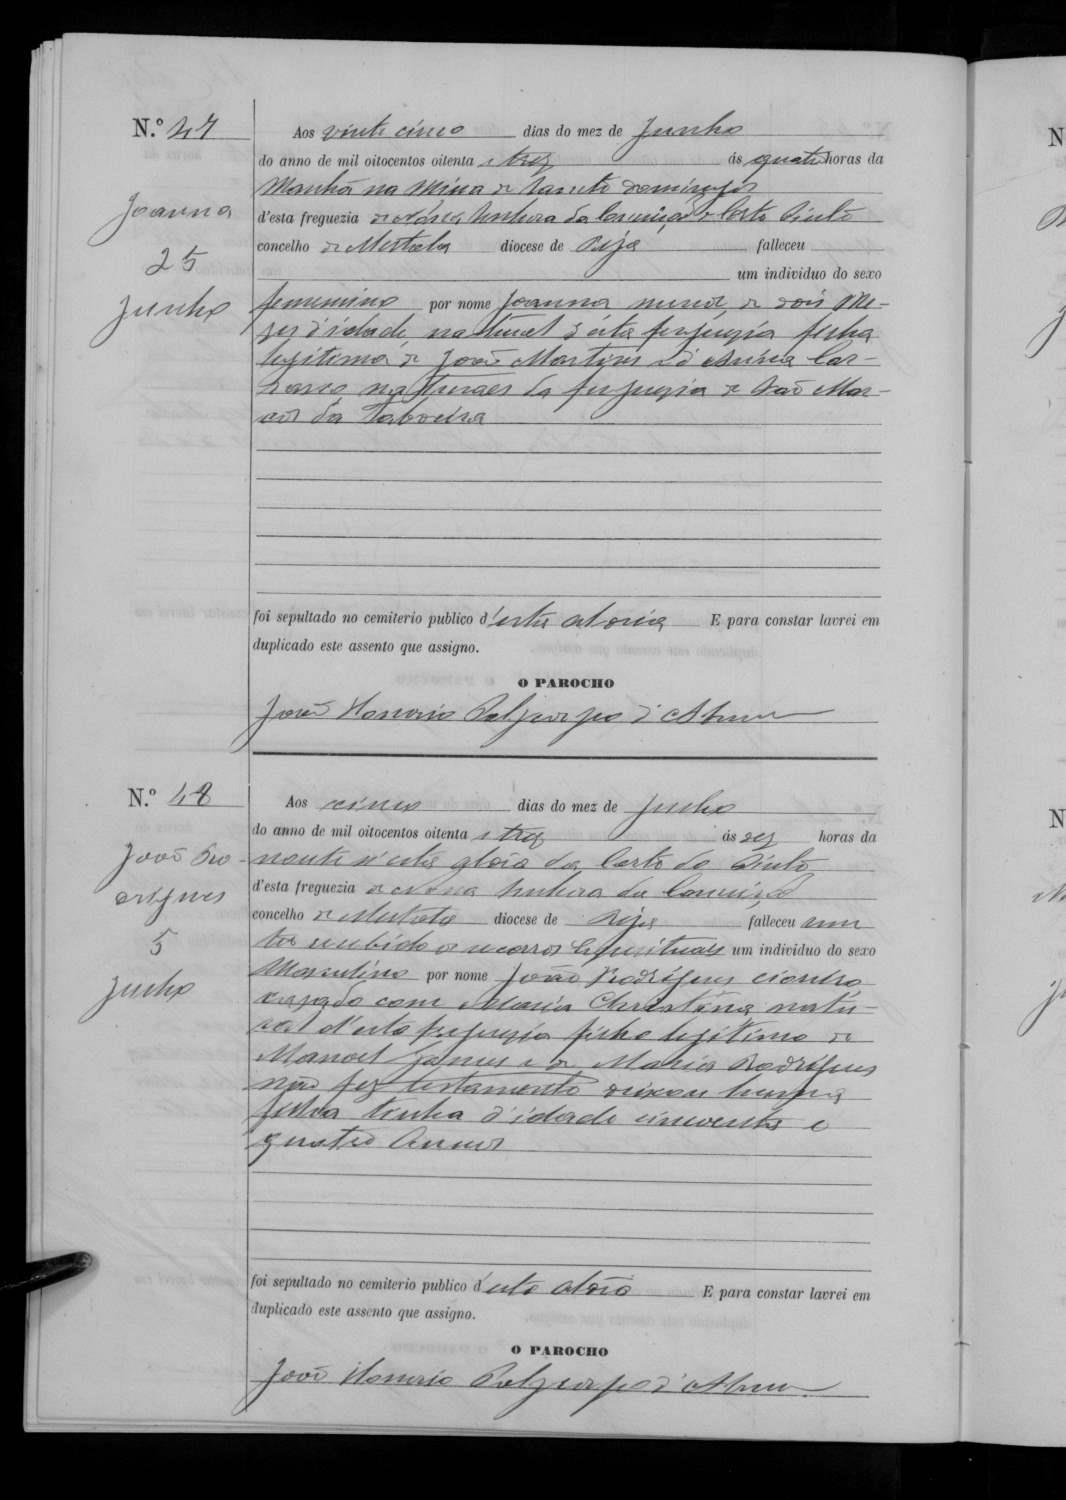 N.º 47
Joanna
25
Junho
Aos vinte cinco dias do mez de Junho
do anno de mil oitocentos oitenta e trez ás quatro horas da
Manhã na Mina de Santo Domingos
d'esta freguezia de Nossa Senhora da Conceição de Corte Pinto
concelho de Mertola diocese de Beja falleceu
um individuo do sexo
femenino por nome Joanna menor de dois Me-
zes d'idade natural d'esta freguezia filha
legitima de João Martins e d'Anna Car-
naturaes da freguezia de São Mar-
cos da
foi sepultado no cemiterio publico d'esta aldeia E para constar lavrei em
duplicado este assento que assigno.
O PAROCHO
João Honorio d'Abreu
N.º 48
João Ro-
drigues
5
Julho
Aos cinco dias do mez de Julho
do anno de mil oitocentos oitenta e trez ás dez horas da
noute n'esta aldeia da Corte do Pinto
d'esta freguezia de Nossa Senhora da Conceição
concelho de Mertola diocese de Beja falleceu sem
ter recebido os socorros Espirituaes um individuo do sexo
Masculino por nome João Rodrigues
casado com Maria Christina natu-
ral d'esta freguezia filho legitimo de
Manoel e de Maria Rodrigues
não fez testamento deixou huma
filha tinha d'idade cincoenta e
quatro Annos
foi sepultado no cemiterio publico d'esta aldeia E para constar lavrei em
duplicado este assento que assigno.
O PAROCHO
João Honorio d'Abreu